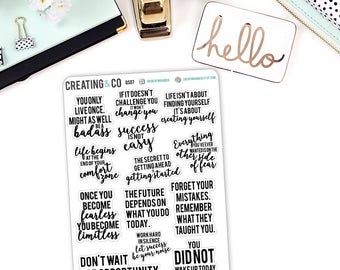 hello
CREATING&CO
Q507
YOU ONLY
LIVE ONCE.
MIGHT AS WELL
be a
badass
IF IT DOESN'T
CHALLENGE YOU
it won't
change you
LIFE ISN'T ABOUT
FINDING YOURSELF
it's about
creating yourself
success
IS NOT
easy
life begins
AT THE
END OF YOUR
comfort
zone
THE SECRET TO
GETTING AHEAD
is
getting started
Everything
YOU'VE EVER
WANTED IS ON THE
other side
of fear
ONCE YOU
BECOME
fearless
YOU BECOME
limitless
THE FUTURE
DEPENDS ON
WHAT YOU DO
TODAY.
FORGET YOUR
MISTAKES.
REMEMBER
WHAT THEY
TAUGHT YOU.
WORK HARD
IN SILENCE
let success
be your noise
DON'T WAIT
OPPORTUNITY
YOU
DID NOT
WAKE UP TODAY